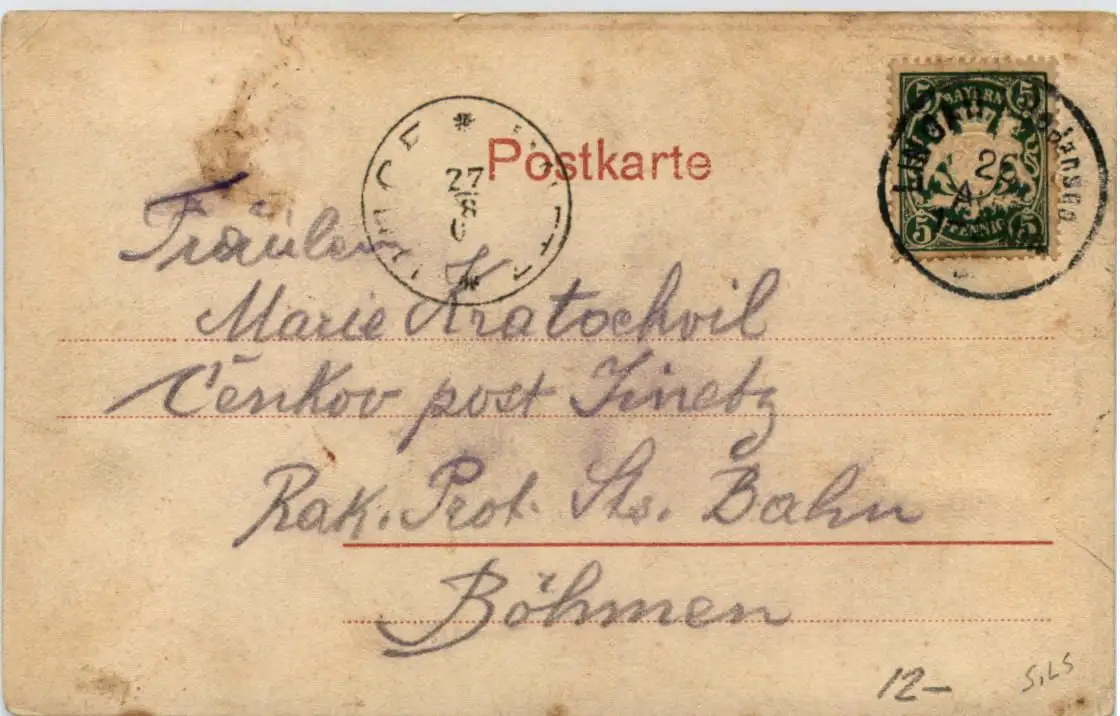 Postkarte
BAYERN
5 5
26
5 PFENNIG 5
27
8
0
Fräulein
Marie Kratochvil
Čenkov post Jinetz
Rak. Prot. Sts. Bahn
Böhmen
12-